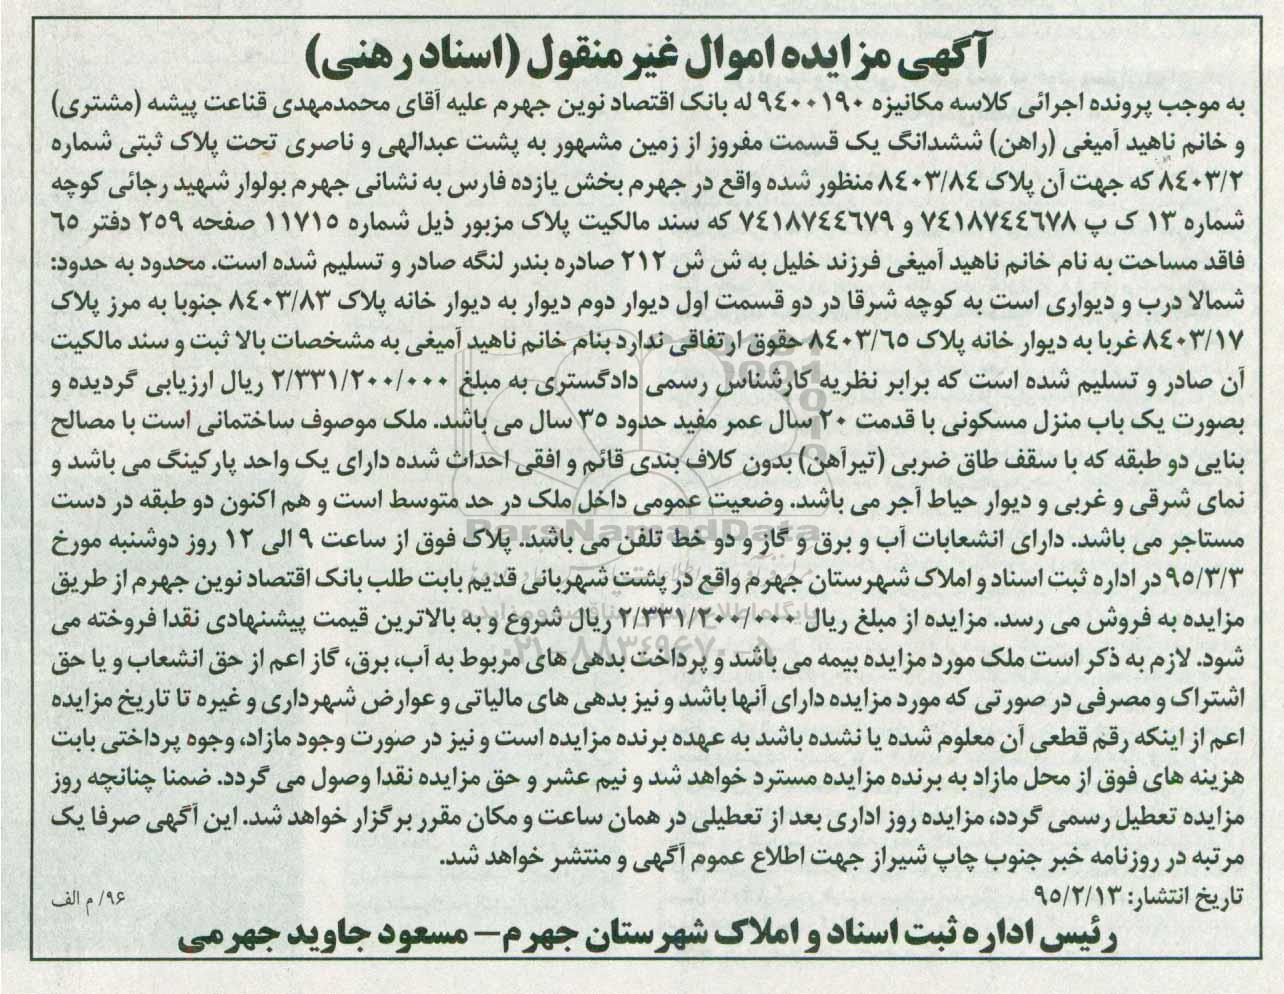 آگهی مزایده اموال غیر منقول (اسناد رهنی)
به موجب پرونده اجرائی کلاسه مکانیزه ۹٤۰۰۱۹۰ له بانک اقتصاد نوین جهرم علیه آقای محمدمهدی قناعت پیشه (مشتری)
و خانم ناهید آمیغی (راهن) ششدانگ یک قسمت مفروز از زمین مشهور به پشت عبدالهی و ناصری تحت پلاک ثبتی شماره
۸٤۰۳/۲ که جهت آن پلاک ۸٤۰۳/۸٤ منظور شده واقع در جهرم بخش یازده فارس به نشانی جهرم بولوار شهید رجائی کوچه
شماره ۱۳ ک پ ۷٤۱۸۷٤٤٦۷۸ و ۷٤۱۸۷٤٤٦۷۹ که سند مالکیت پلاک مزبور ذیل شماره ۱۱۷۱۵ صفحه ۲۵۹ دفتر ٦۵
فاقد مساحت به نام خانم ناهید آمیغی فرزند خلیل به ش ش ۲۱۲ صادره بندر لنگه صادر و تسلیم شده است. محدود به حدود:
شمالا درب و دیواری است به کوچه شرقا در دو قسمت اول دیوار دوم دیوار به دیوار خانه پلاک ۸٤۰۳/۸۳ جنوبا به مرز پلاک
۸٤۰۳/۱۷ غربا به دیوار خانه پلاک ۸٤۰۳/٦۵ حقوق ارتفاقی ندارد بنام خانم ناهید آمیغی به مشخصات بالا ثبت و سند مالکیت
آن صادر و تسلیم شده است که برابر نظریه کارشناس رسمی دادگستری به مبلغ ۲/۳۳۱/۲۰۰/۰۰۰ ریال ارزیابی گردیده و
بصورت یک باب منزل مسکونی با قدمت ۲۰ سال عمر مفید حدود ۳۵ سال می باشد. ملک موصوف ساختمانی است با مصالح
بنایی دو طبقه که با سقف طاق ضربی (تیرآهن) بدون کلاف بندی قائم و افقی احداث شده دارای یک واحد پارکینگ می باشد و
نمای شرقی و غربی و دیوار حیاط آجر می باشد. وضعیت عمومی داخل ملک در حد متوسط است و هم اکنون دو طبقه در دست
مستاجر می باشد. دارای انشعابات آب و برق و گاز و دو خط تلفن می باشد. پلاک فوق از ساعت ۹ الی ۱۲ روز دوشنبه مورخ
۹۵/۳/۳ در اداره ثبت اسناد و املاک شهرستان جهرم واقع در پشت شهربانی قدیم بابت طلب بانک اقتصاد نوین جهرم از طریق
مزایده به فروش می رسد. مزایده از مبلغ ریال ۲/۳۳۱/۲۰۰/۰۰۰ ریال شروع و به بالاترین قیمت پیشنهادی نقدا فروخته می
شود. لازم به ذکر است ملک مورد مزایده بیمه می باشد و پرداخت بدهی های مربوط به آب، برق، گاز اعم از حق انشعاب و یا حق
اشتراک و مصرفی در صورتی که مورد مزایده دارای آنها باشد و نیز بدهی های مالیاتی و عوارض شهرداری و غیره تا تاریخ مزایده
اعم از اینکه رقم قطعی آن معلوم شده یا نشده باشد به عهده برنده مزایده است و نیز در صورت وجود مازاد، وجوه پرداختی بابت
هزینه های فوق از محل مازاد به برنده مزایده مسترد خواهد شد و نیم عشر و حق مزایده نقدا وصول می گردد. ضمنا چنانچه روز
مزایده تعطیل رسمی گردد، مزایده روز اداری بعد از تعطیلی در همان ساعت و مکان مقرر برگزار خواهد شد. این آگهی صرفا یک
مرتبه در روزنامه خبر جنوب چاپ شیراز جهت اطلاع عموم آگهی و منتشر خواهد شد.
تاریخ انتشار: ۹۵/۲/۱۳
۹۶/ م الف
رئیس اداره ثبت اسناد و املاک شهرستان جهرم – مسعود جاوید جهرمی
ParsNamadData
۰۲۱-۸۸۳٤۹٦۷۰-۸